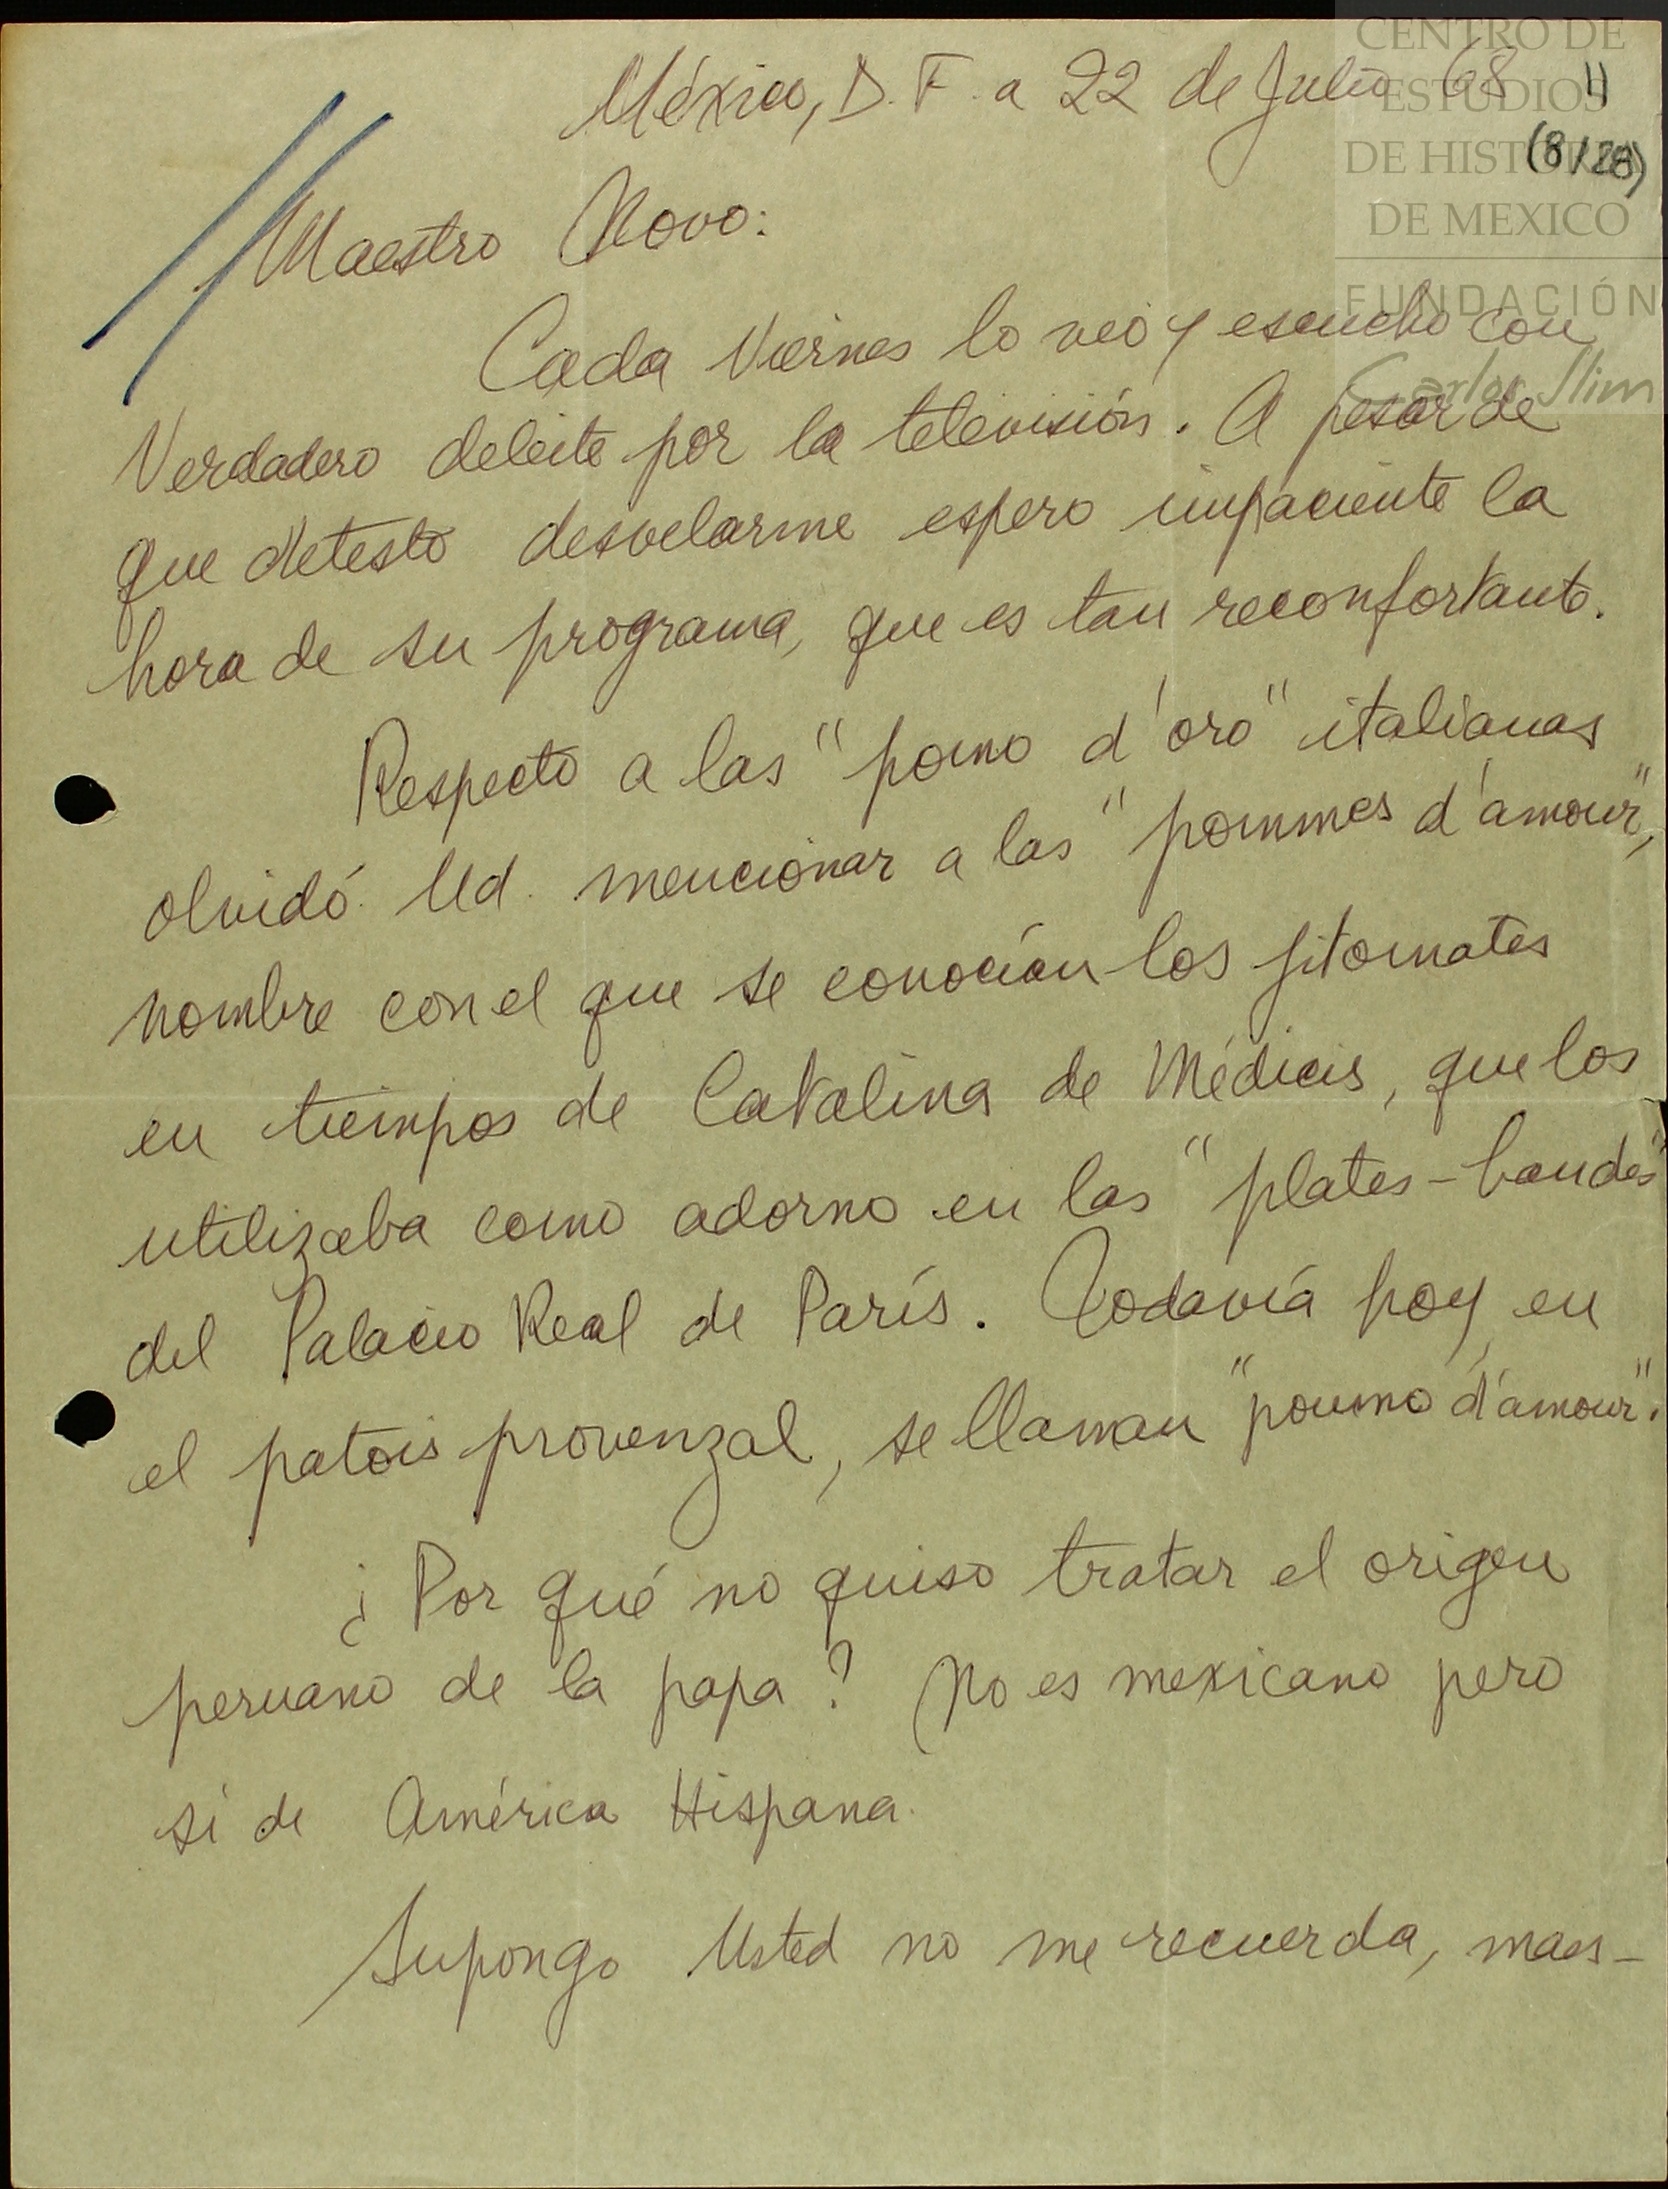 CENTRO DE
ESTUDIOS
DE HISTORIA
DE MEXICO
FUNDACIÓN
Carlos Slim
México, D.F. a 22 de Julio 68
11
(8/28)
Maestro Novo:
Cada Viernes lo veo y escucho con
Verdadero deleite por la televisión. A pesar de
que detesto desvelarme espero impaciente la
hora de su programa, que es tan reconfortante.
Respecto a las "pomo d'oro" italianas
olvidó Ud. mencionar a las "pommes d'amour",
nombre con el que se conocían los jitomates
en tiempos de Catalina de Médicis, que los
utilizaba como adorno en las "plates-bandes"
del Palacio Real de París. Todavía hoy, en
el patois provenzal, se llaman "poumo d'amour".
¿Por qué no quiso tratar el origen
peruano de la papa? No es mexicano pero
sí de América Hispana.
Supongo Usted no me recuerda, maes-